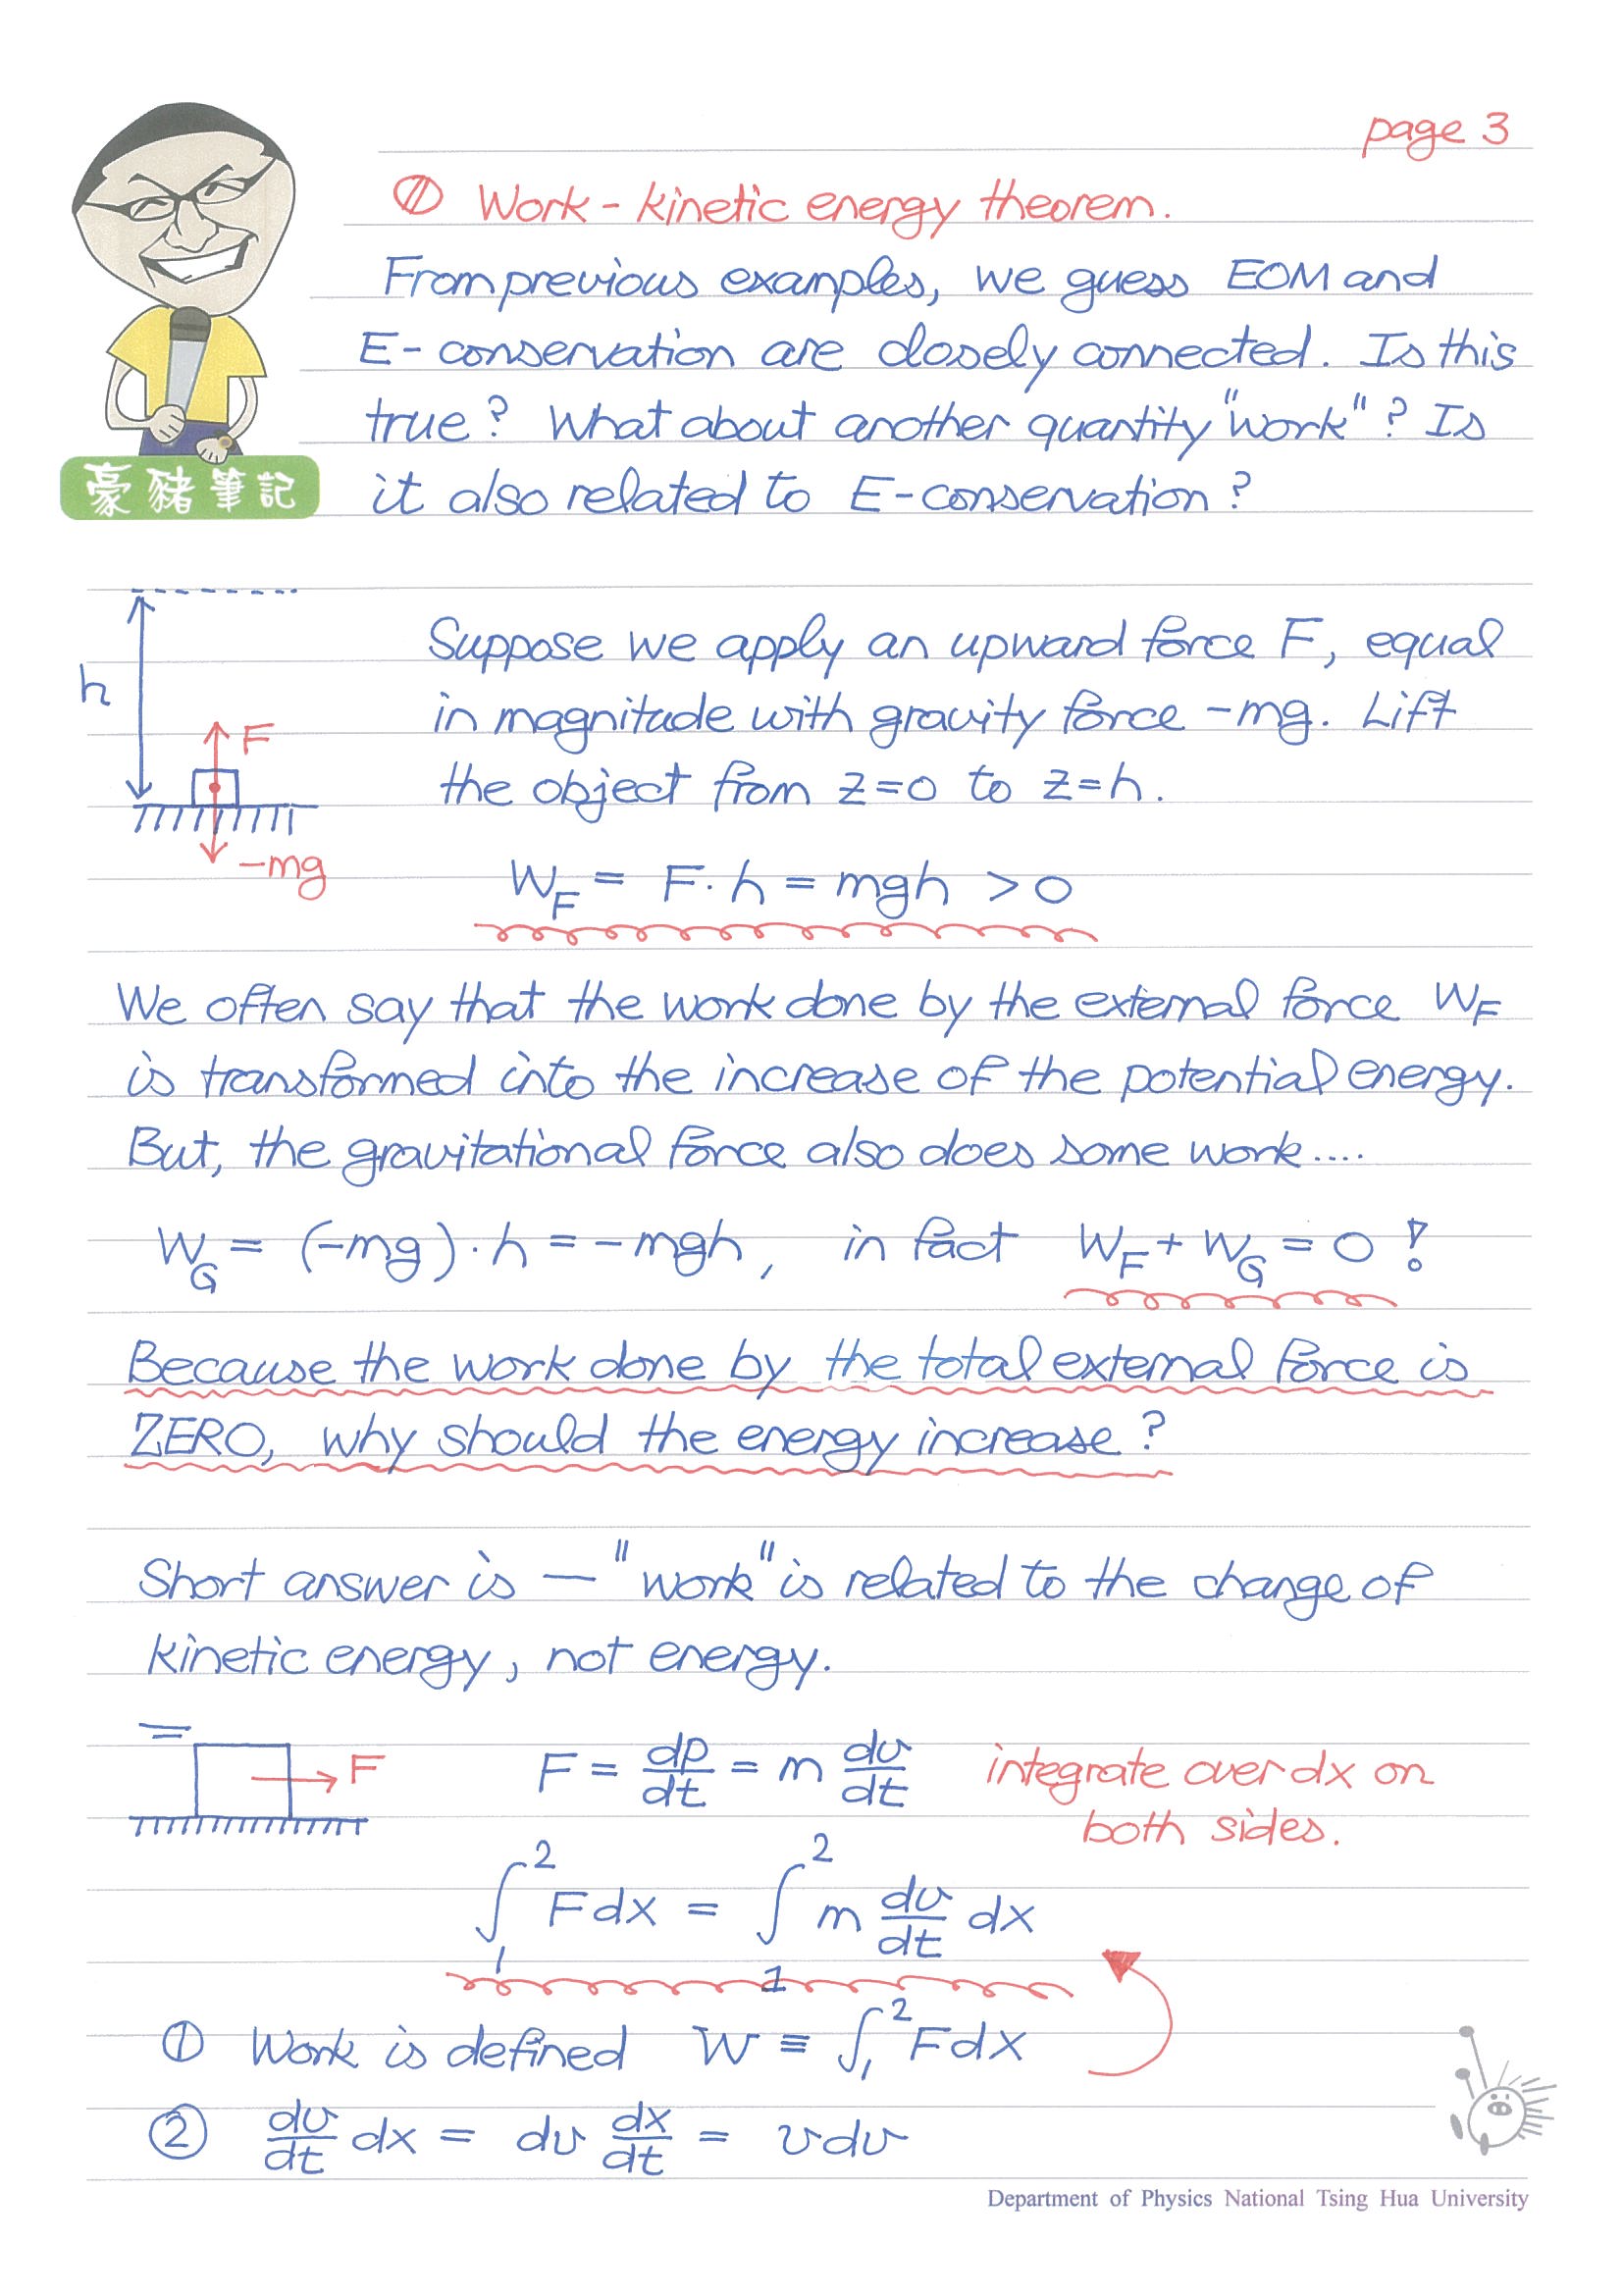 page 3
Work - kinetic energy theorem.
From previous examples, we guess EOM and
E-conservation are closely connected. Is this
true? What about another quantity "work"? Is
it also related to E-conservation?
豪豬筆記
h
F
-mg
Suppose we apply an upward force F, equal
in magnitude with gravity force -mg. Lift
the object from z=0 to z=h.
W_F = F·h = mgh > 0
We often say that the work done by the external force W_F
is transformed into the increase of the potential energy.
But, the gravitational force also does some work....
W_G = (-mg)·h = -mgh, in fact W_F + W_G = 0 !
Because the work done by the total external force is
ZERO, why should the energy increase?
Short answer is — "work" is related to the change of
kinetic energy, not energy.
F
F = dp/dt = m dv/dt integrate over dx on
both sides.
∫₁² Fdx = ∫₁² m dv/dt dx
① Work is defined W ≡ ∫₁² Fdx
② dv/dt dx = dv dx/dt = vdv
Department of Physics National Tsing Hua University